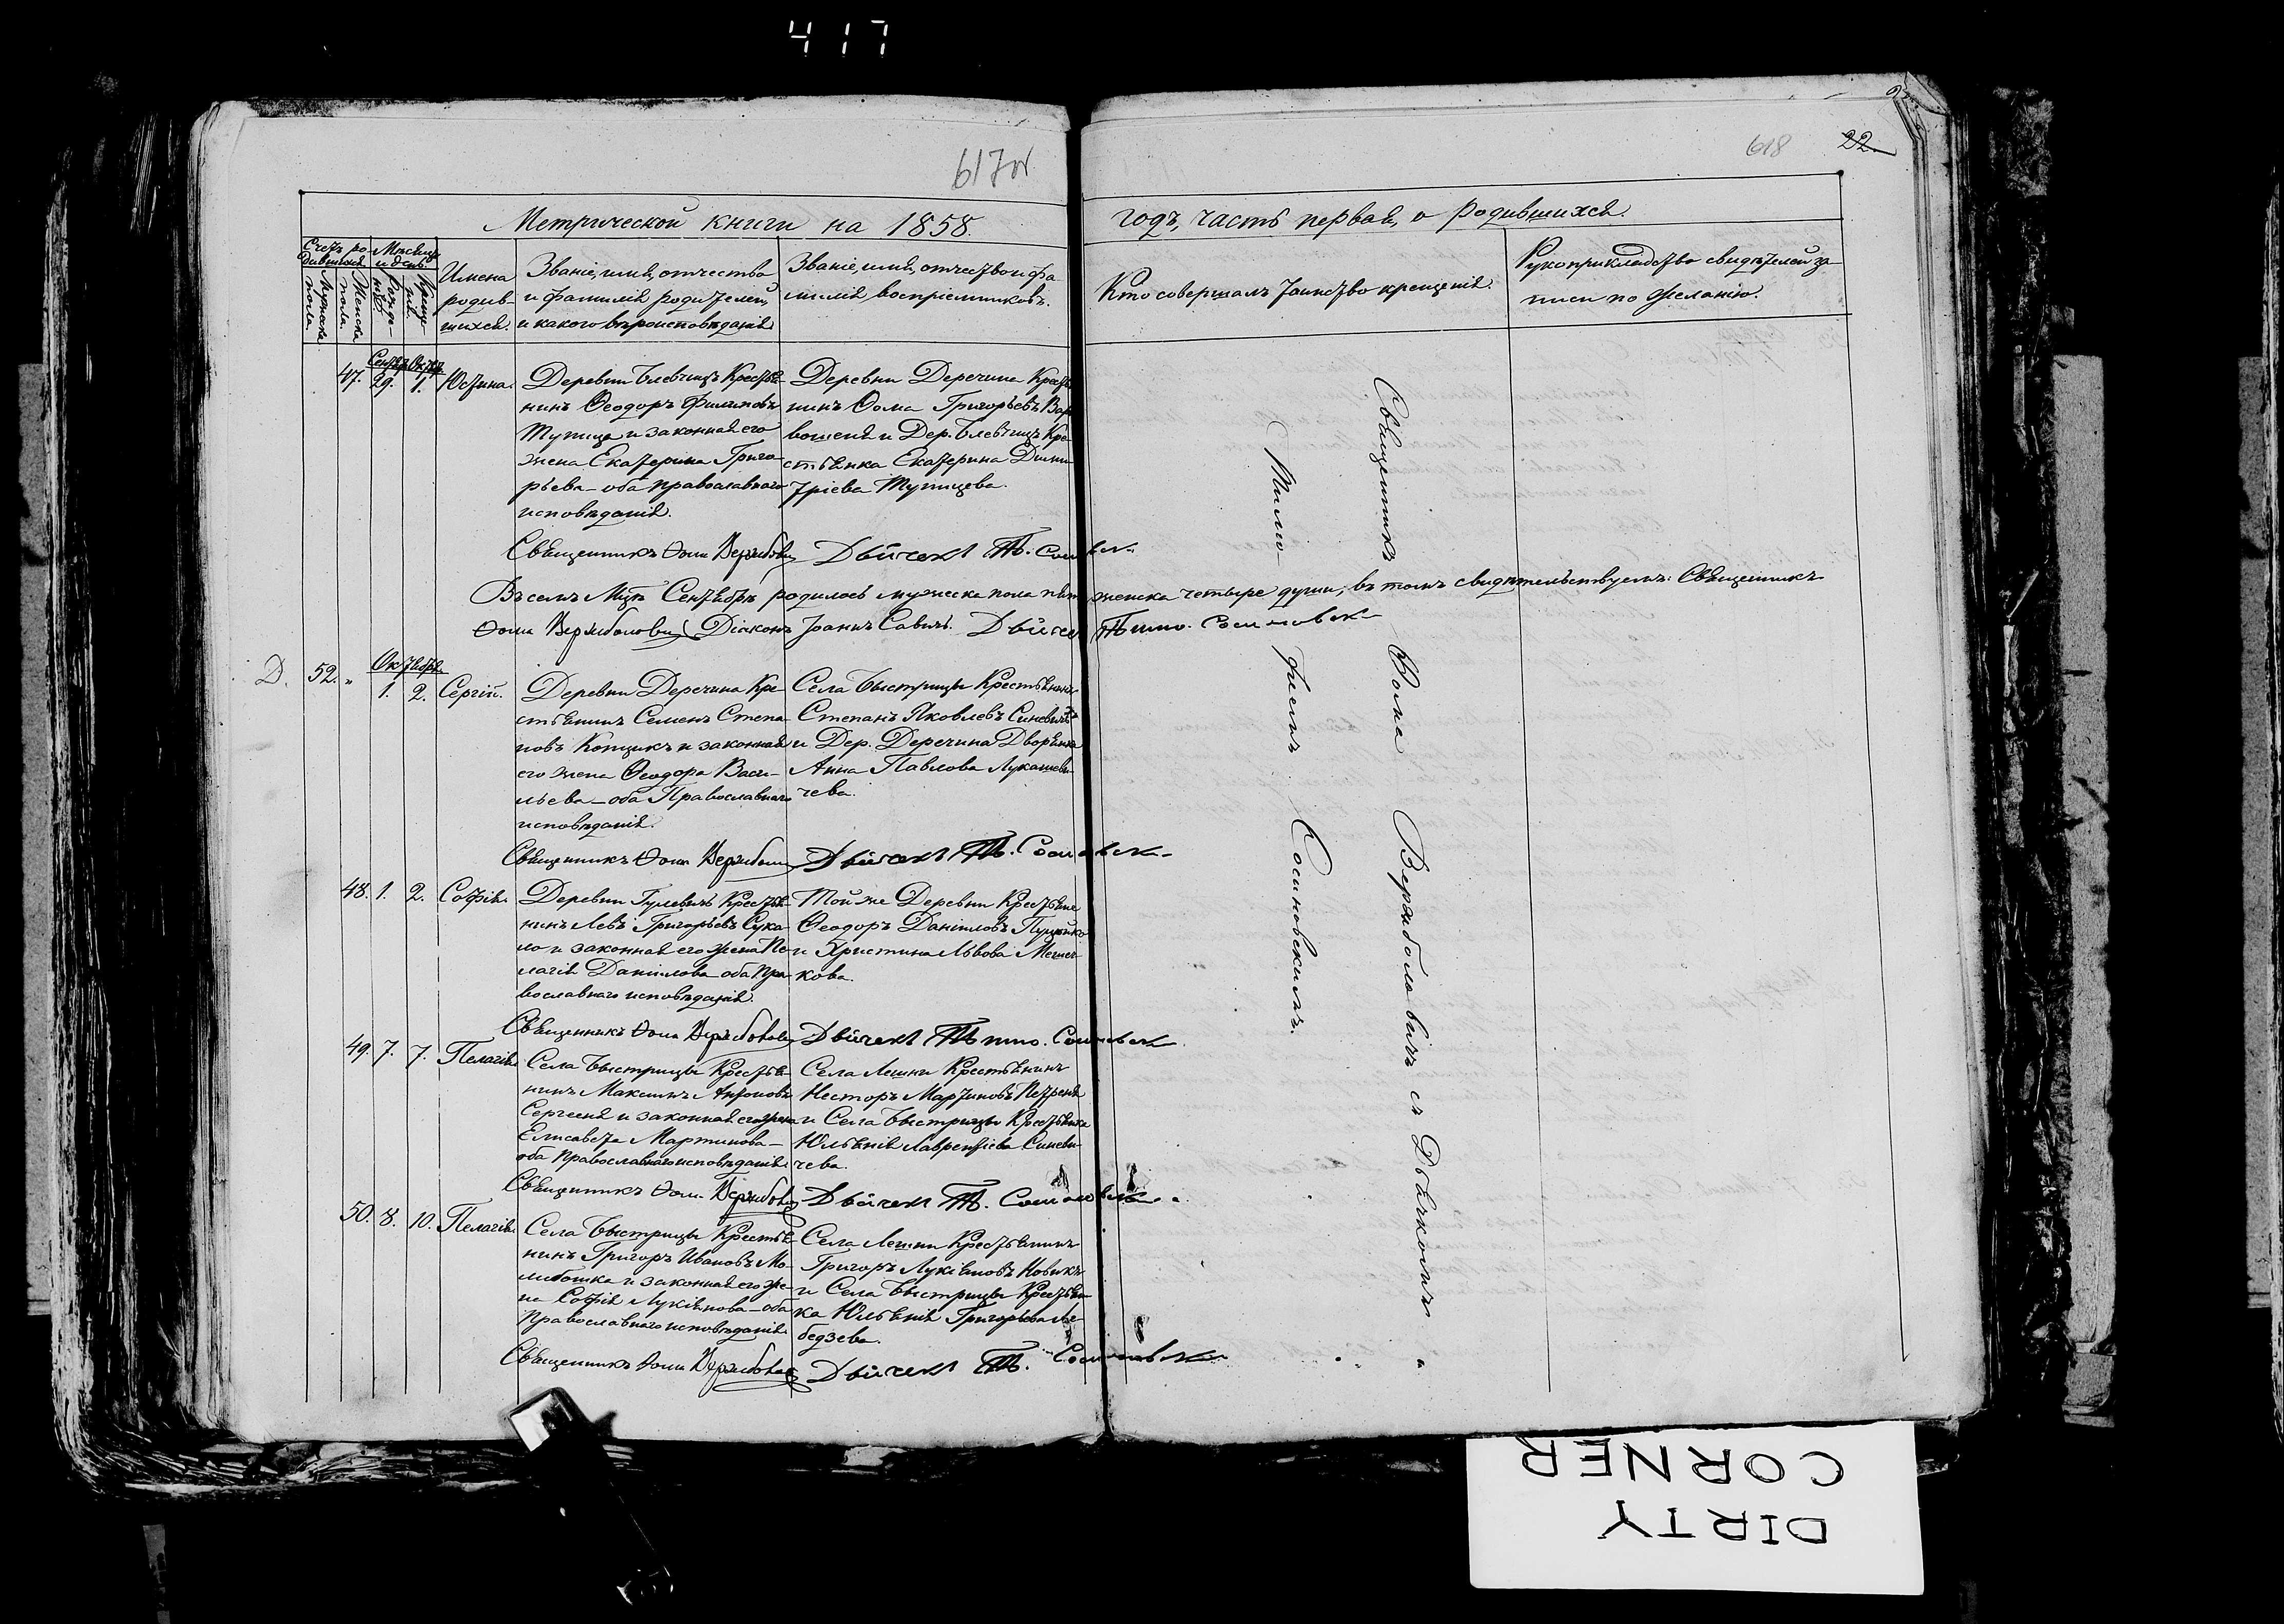 417
617об
618 22.
Метрической книги на 1858.
годъ, часть первая, о родившихся.
Счетъ ро-
дившихся
Мужеска
пола.
Женска
пола.
Мѣсяцъ
и день
Рожде-
нія
Креще-
нія
Имена
родив-
шихся.
Званіе, имя, отчество
и фамилія родителей,
и какого вѣроисповѣданія
Званіе, имя, отчество и фа
милія воспріемниковъ.
Кто совершалъ таинство крещенія.
Рукоприкладство свидѣтелей за-
писи по желанію.
Сентяб. Октяб.
47. 29. 1. Юстина.
Деревни Блевчицъ Крестья-
нинъ Ѳеодоръ Филимоновъ
Тупица и законная его
жена Екатерина Григо-
рьева - оба православнаго
исповѣданія.
Деревни Деречина Крестья
нинъ Ѳома Григорьевъ Вар
вошеня и Дер. Блевчицъ Кре
стьянка Екатерина Дими
тріева Тупицева.
Священникъ Ѳома Вержболович Дьячекъ Т. Сосиновск
Въ семъ Мцѣ Сентябрѣ родилось мужеска пола пять женска четыре души, въ томъ свидѣтельствуемъ: Священникъ
Ѳома Вержболович Діаконъ Іоаннъ Савичъ. Дьячекъ Тимо. Сосиновск
Октября
Д. 52. „ 1. 2. Сергій.
Деревни Деречина Кре
стьянинъ Семенъ Степа-
новъ Копцикъ и законная
его жена Ѳеодора Васи-
льева - оба Православнаго
исповѣданія.
Села Быстрицы Крестьянинъ
Степанъ Яковлевъ Синевичъ
и Дер. Деречина Дворянка
Анна Павлова Лукашеви
чева.
Священникъ Ѳома Вержболович Дьячекъ Т. Сосиновск
48. 1. 2. Софія
Деревни Гулевичъ Крестья-
нинъ Левъ Григорьевъ Сука-
ло и законная его жена Пе-
лагія Даніилова оба Пра-
вославнаго исповѣданія.
Той же Деревни Крестьяне
Ѳеодоръ Даніиловъ
и Христина Львова
кова.
Священникъ Ѳома Вержболович Дьячекъ Тимо. Сосиновск
49. 7. 7. Пелагія
Села Быстрицы Крестья-
нинъ Максимъ Антоновъ
Сергееня и законная его жена
Елисавета Мартинова -
оба Православнаго исповѣданія.
Села Лешни Крестьянинъ
Несторъ Мартиновъ Петреня
и Села Быстрицы Крестьянка
Юльянія Лаврентіева Синеви
чева.
Священникъ Ѳома Вержболович Дьячекъ Т. Сосиновск
50. 8. 10. Пелагія
Села Быстрицы Крестья-
нинъ Григоръ Ивановъ Мо-
либошка и законная его же-
на Софія Лукіянова - оба
Православнаго исповѣданія
Села Лешни Крестьянинъ
Григоръ Лукіяновъ Новикъ
и Села Быстрицы Крестьян-
ка Юльянія Григорьева Ле-
бедзева.
Священникъ Ѳома Вержболович Дьячекъ Т. Сосиновск
Священникъ Ѳома Вержболовичъ съ Дьячкомъ
Тимо- феемъ Сосиновскимъ.
DIRTY
CORNER